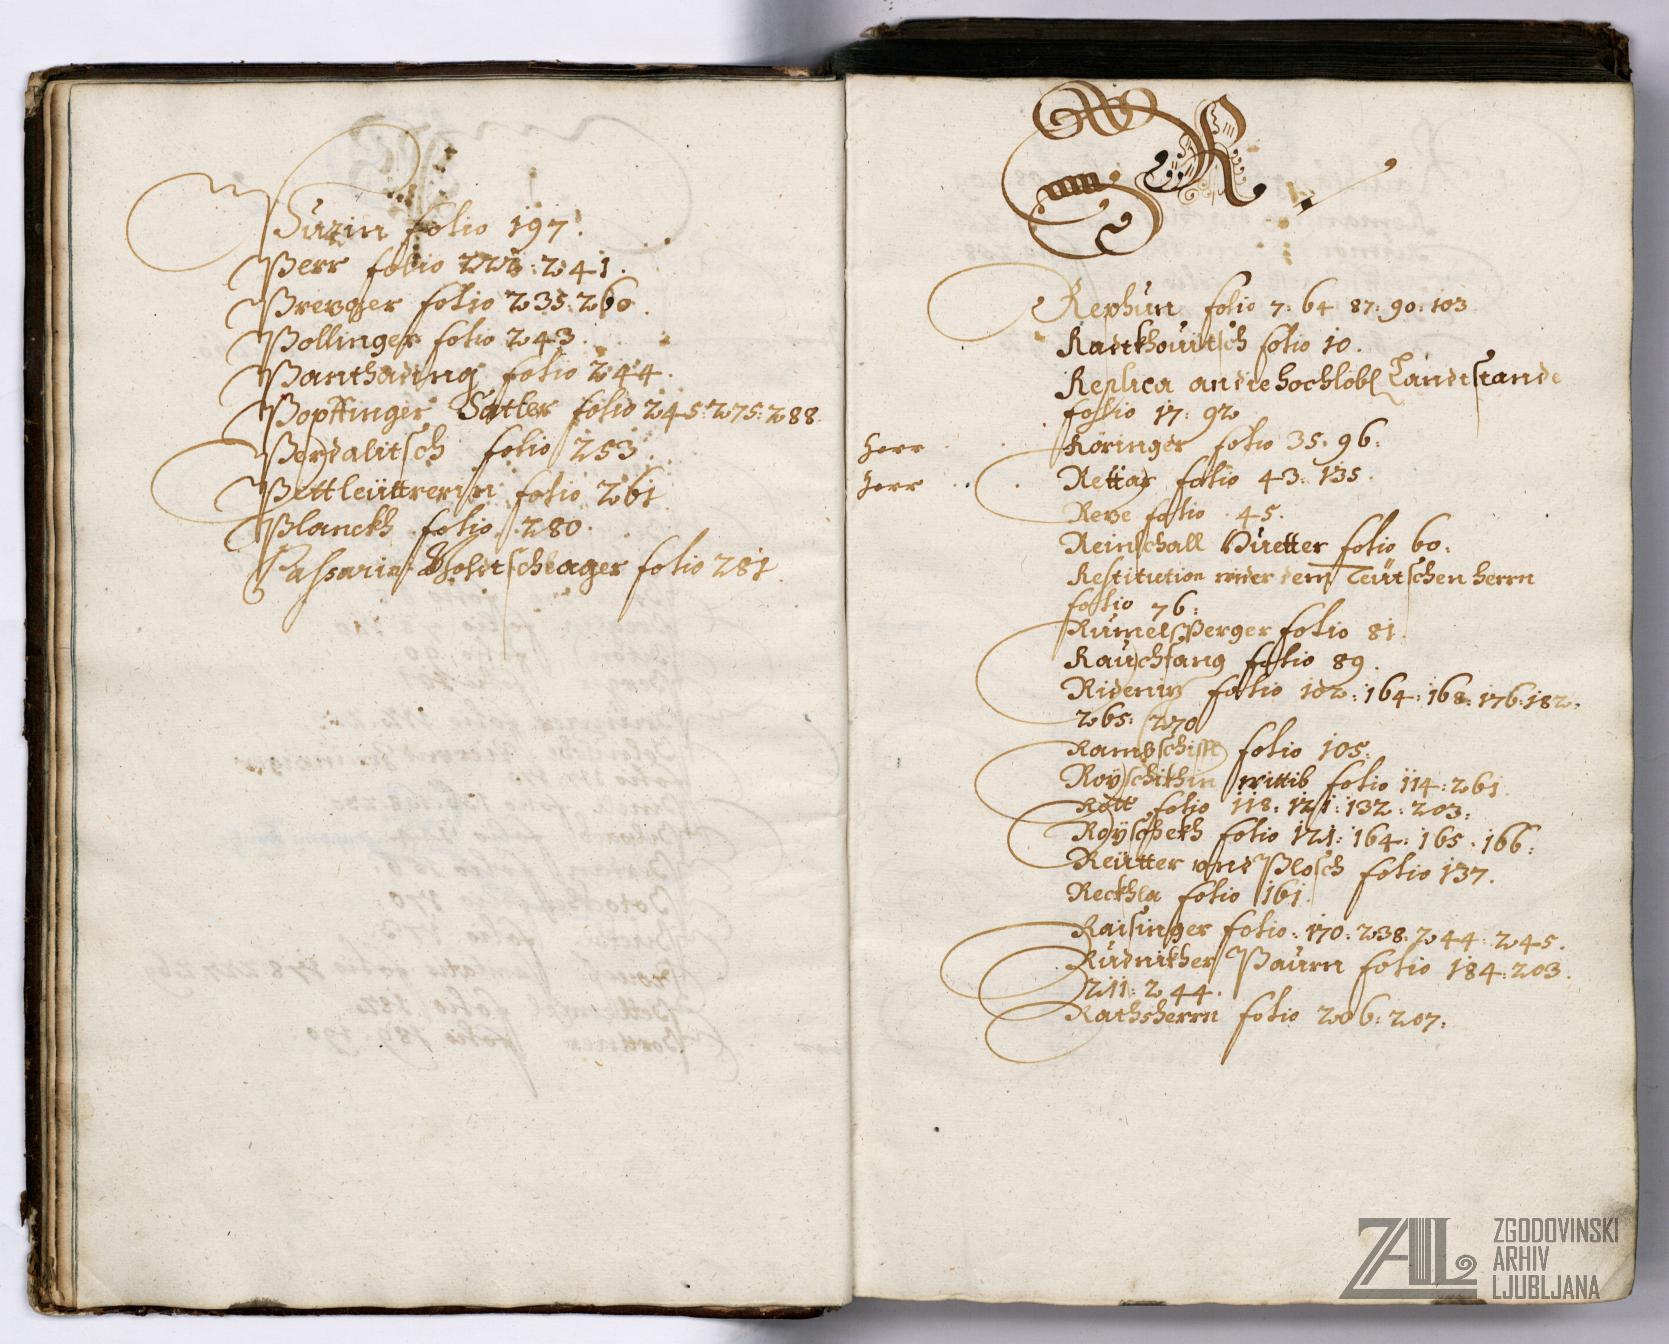 Purin folio 197.
Perr folio 241.
Preuger folio 235: 260.
Pollinger folio 243.
Panthading folio 244.
Popffinger Satler folio 245: 275: 288
Perdalitsch folio 253.
folio 261
Planckh folio 280.
Passarin Goldtschlager folio 281.
R
Rephun folio 7: 64 87: 90: 103
folio 10.
Replica an die hochlobl Landtstande
folio 17: 92
Herr Röringer folio 35: 96:
Herr Rettar folio 43: 135.
Reve folio 45.
Reinschall Huetter folio 60.
Restitution wider dem Teütschen herrn
folio 76:
Rumelsperger folio 81.
Rauchfang folio 89.
folio 102: 164: 168: 176: 182:
265: 270
Rampschissl folio 105.
wittib folio 114: 261.
Rott folio 118: 121: 132: 203:
folio 121: 164: 165: 166:
Reütter vnd Plosch folio 137.
Reckhla folio 161.
Raisinger folio: 170: 238: 244: 245.
Rudnikher Paurn folio 184: 203
211: 244.
Rathsherrn folio 206: 207:
ZAL ZGODOVINSKI
ARHIV
LJUBLJANA